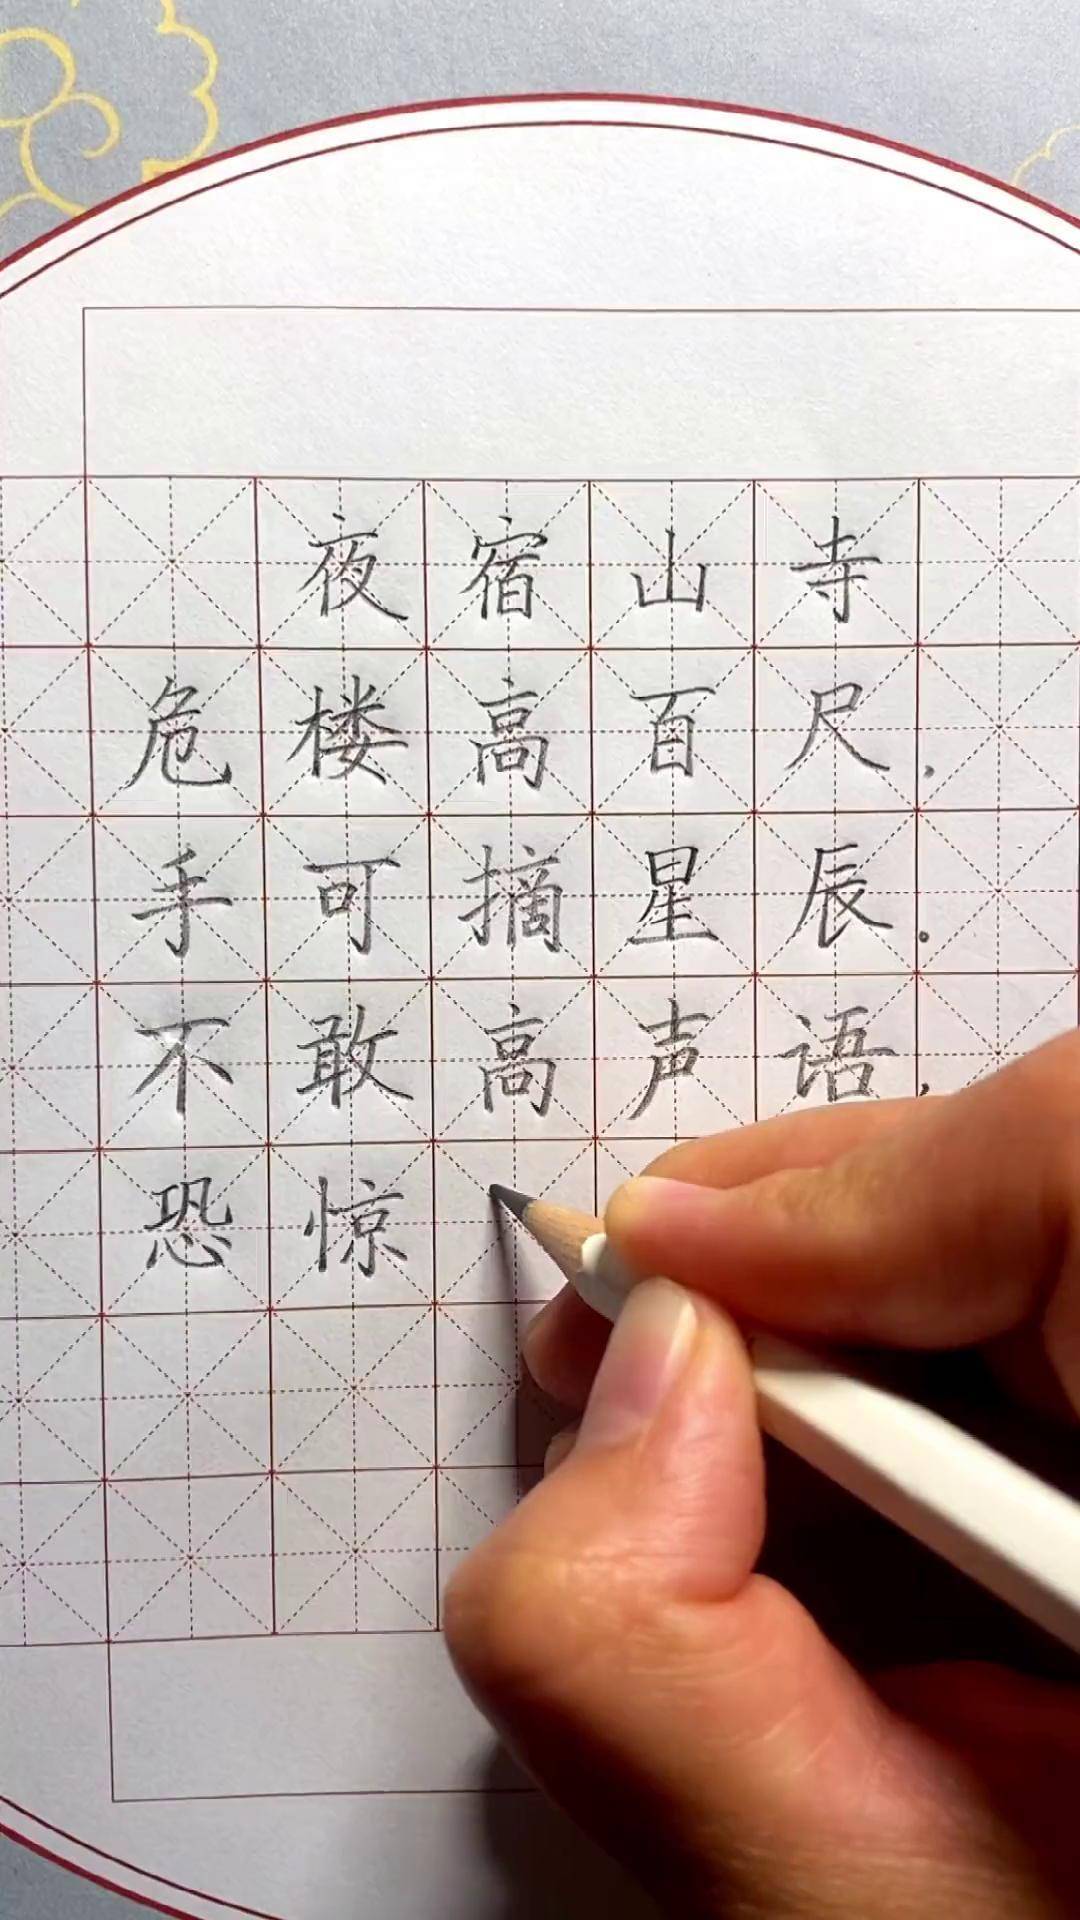 夜宿山寺
危楼高百尺，
手可摘星辰．
不敢高声语，
恐惊